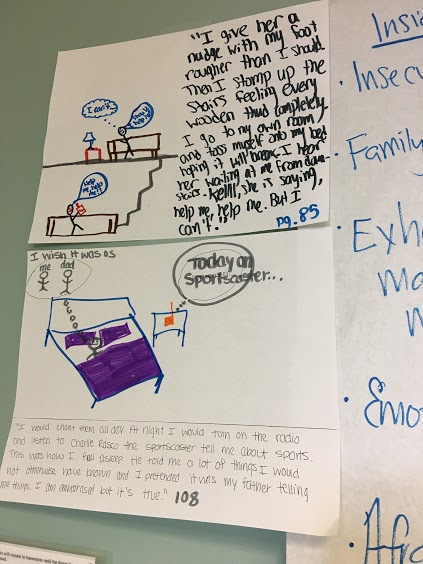 "I give her a
nudge with my foot
rougher than I should.
Then I stomp up the
stairs feeling every
wooden thud completely.
I go to my own room
and toss myself onto my bed
hoping it will break. I hear
her wailing at me from down-
stairs. Kelli, she is saying,
help me, help me. But I
can't."
pg. 85
I can't
help me help
me!!
I wish it was os
me dad
Today on
Sportscaster...
"I would chant them all day. At night I would turn on the radio
and listen to Charlie Rasco the sportscaster tell me about sports.
This was how I fell asleep. He told me a lot of things I would
not otherwise have known and I pretended it was my father telling
me things. I am embarrased but it's true." 108
Insi
• Insec
• Family
• Exh
ma
• Emo
• Afr